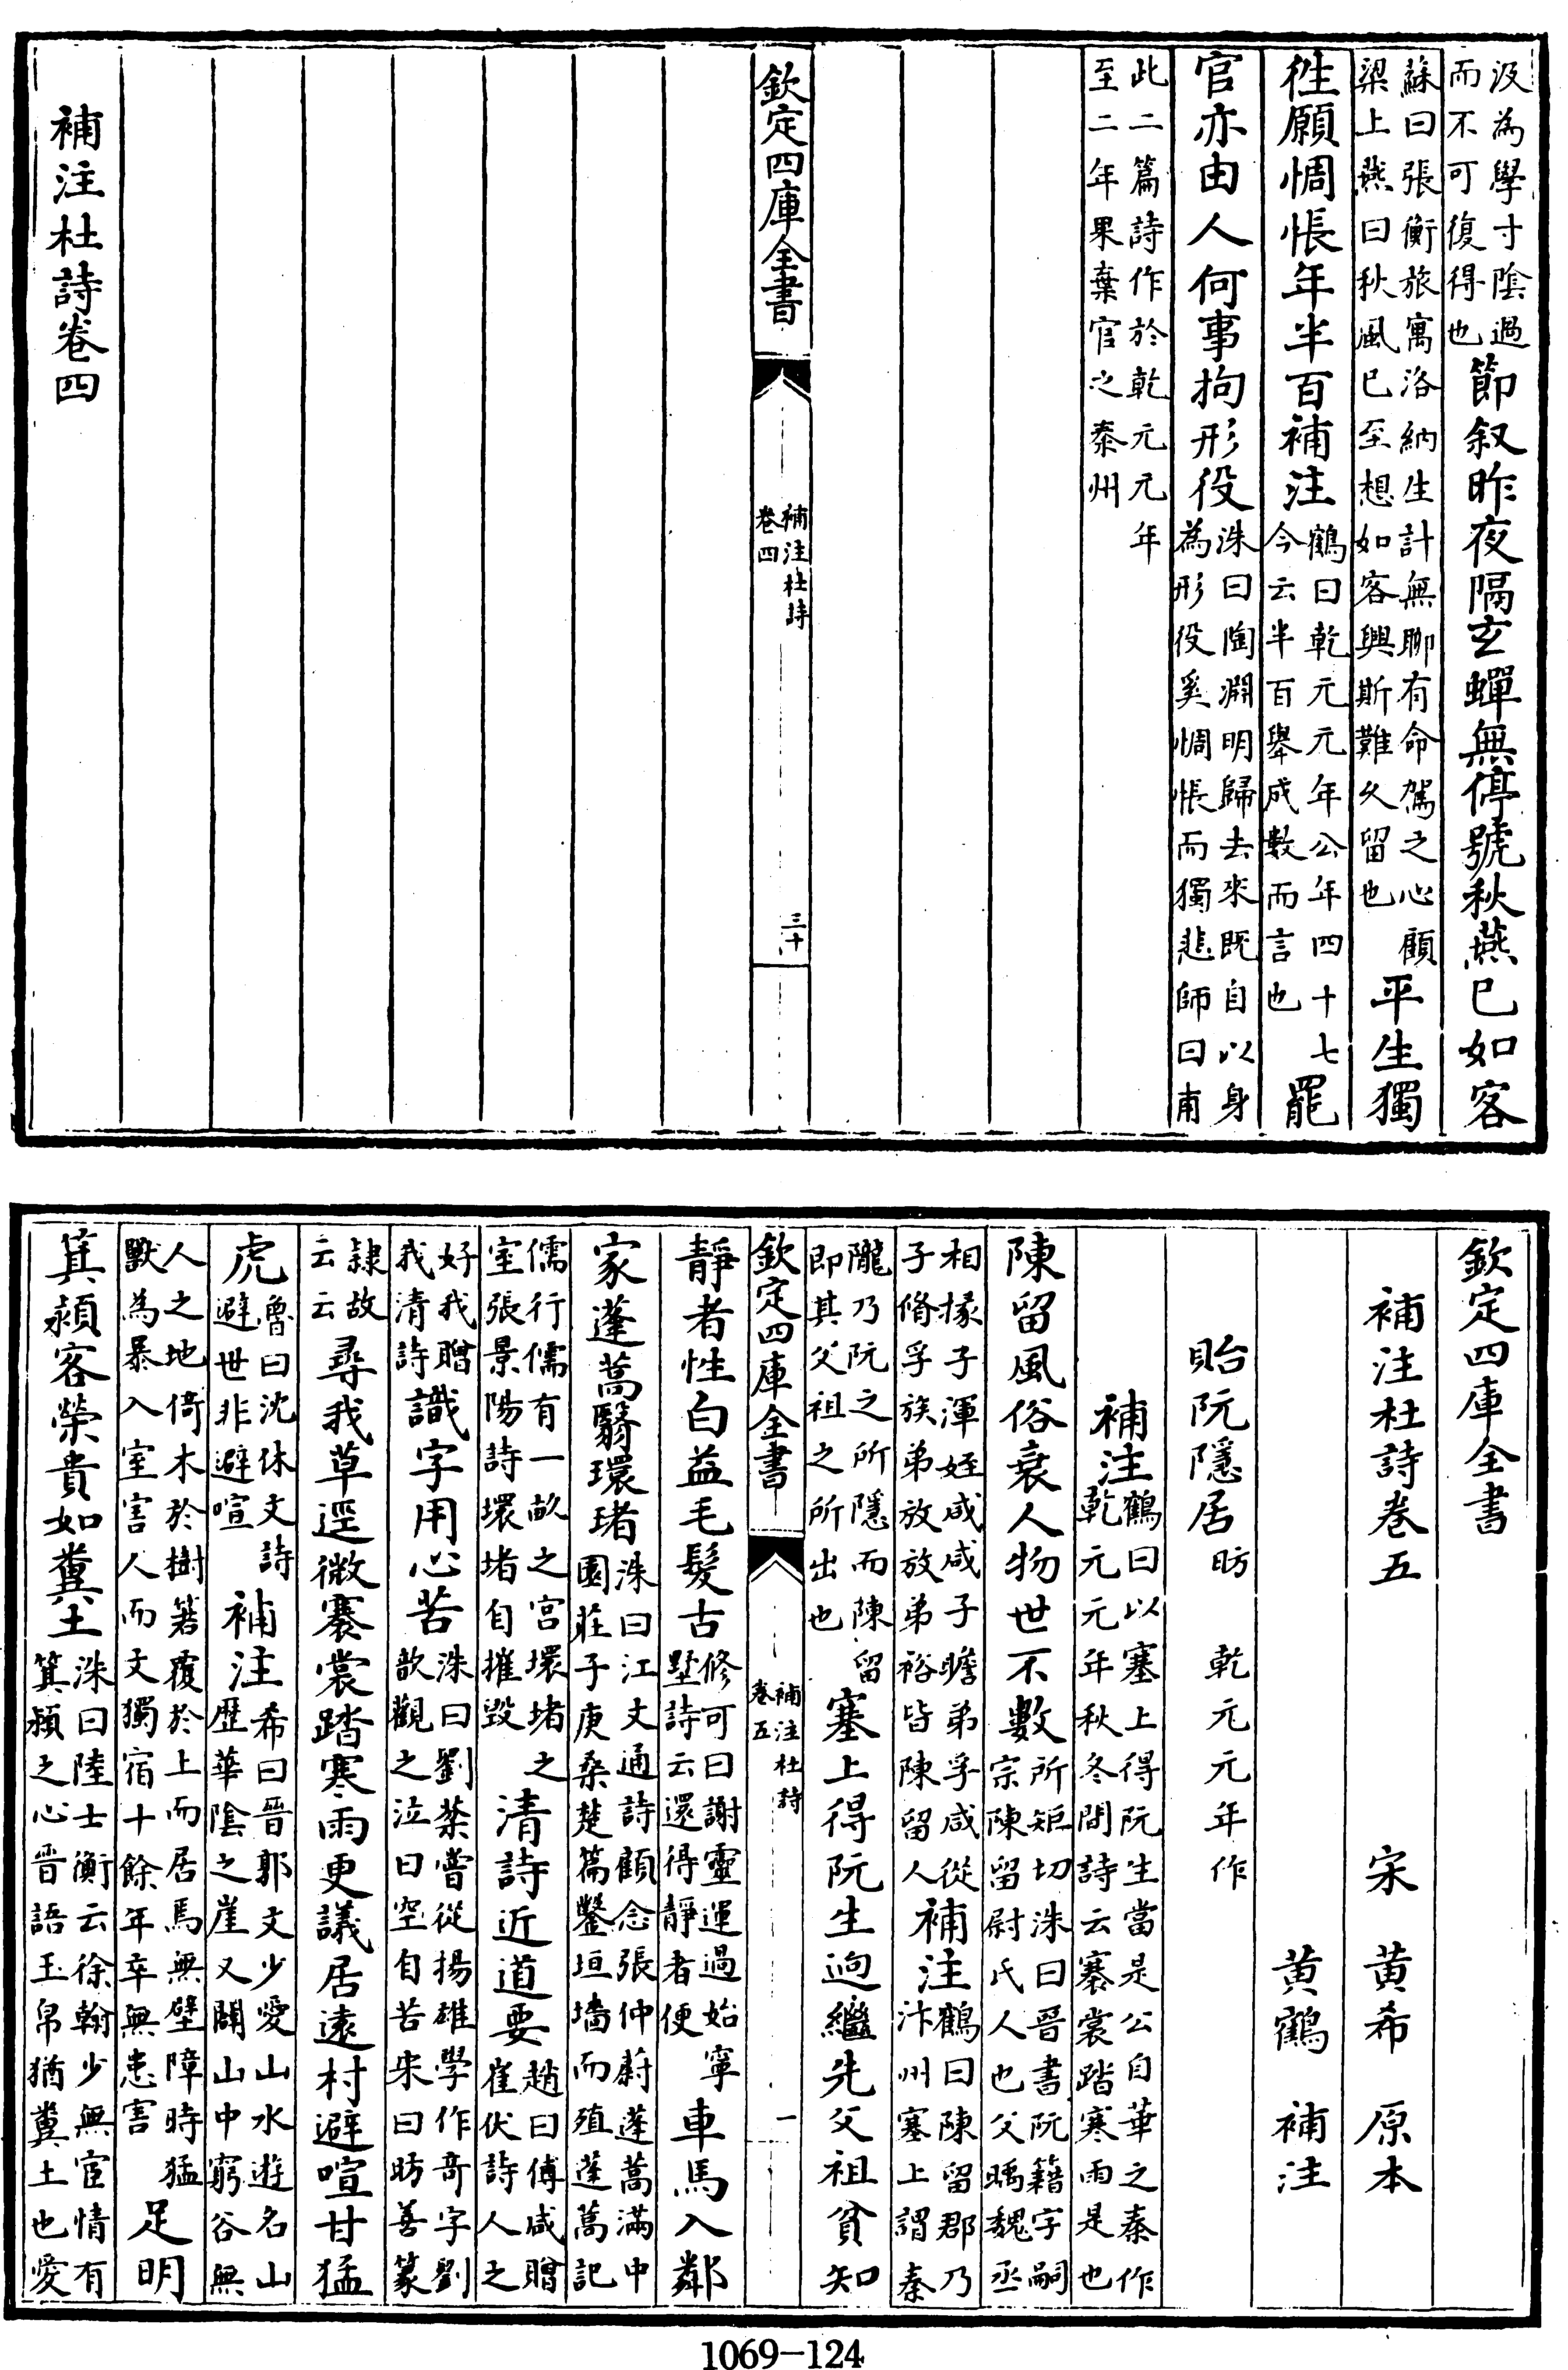 汲為學寸陰過
而不可復得也節叙昨夜隔玄蟬無停號秋燕已如客
蘇曰張衡旅寓洛納生計無聊有命駕之心顧
梁上燕曰秋風已至想如客興斯難久留也平生獨
徃願惆悵年半百補注鶴曰乾元元年公年四十七
今云半百舉成數而言也罷
官亦由人何事拘形役洙曰陶淵明歸去來既自以身
為形役奚惆悵而獨悲師曰甫
此二篇詩作於乾元元年
至二年果棄官之秦州
欽定四庫全書
補注杜詩
卷四
三十
補注杜詩卷四
欽定四庫全書
補注杜詩卷五
宋 黄希 原本
黄鶴 補注
貽阮隱居昉 乾元元年作
補注鶴曰以塞上得阮生當是公自華之秦作
乾元元年秋冬間詩云褰裳踏寒雨是也
陳留風俗衰人物世不數所矩切洙曰晉書阮籍字嗣
宗陳留尉氏人也父瑀魏丞
相掾子渾姪咸咸子瞻弟孚咸從
子脩孚族弟放放弟裕皆陳留人補注鶴曰陳留郡乃
汴州塞上謂秦
隴乃阮之所隱而陳留
即其父祖之所出也塞上得阮生逈繼先父祖貧知
欽定四庫全書
補注杜詩
卷五
一
靜者性白益毛髮古修可曰謝靈運過始寧
墅詩云還得靜者便車馬入鄰
家蓬蒿翳環堵洙曰江文通詩顧念張仲蔚蓬蒿滿中
園莊子庚桑楚篇鑿垣墻而殖蓬蒿記
儒行儒有一畝之宮環堵之
室張景陽詩環堵自摧毀清詩近道要趙曰傅咸贈
崔伏詩人之
好我贈
我清詩識字用心苦洙曰劉棻嘗從揚雄學作奇字劉
歆觀之泣曰空自苦宋曰昉善篆
隸故
云云尋我草逕微褰裳踏寒雨更議居遠村避喧甘猛
虎魯曰沈休文詩
避世非避喧補注希曰晉郭文少愛山水遊名山
歷華陰之崖又闢山中窮谷無
人之地倚木於樹箬覆於上而居焉無壁障時猛
獸為暴入室害人而文獨宿十餘年卒無患害足明
箕潁客榮貴如糞土洙曰陸士衡云徐翰少無宦情有
箕潁之心晉語玉帛猶糞土也愛
1069-124